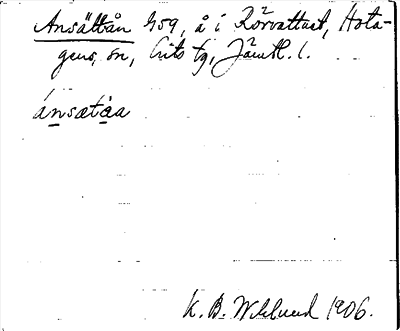 Ansättån 959, å i Rörvattnet, Hota-
gens sn, Lits tg, Jämtl. l.
ánsætåa
K. B. Wiklund 1906.